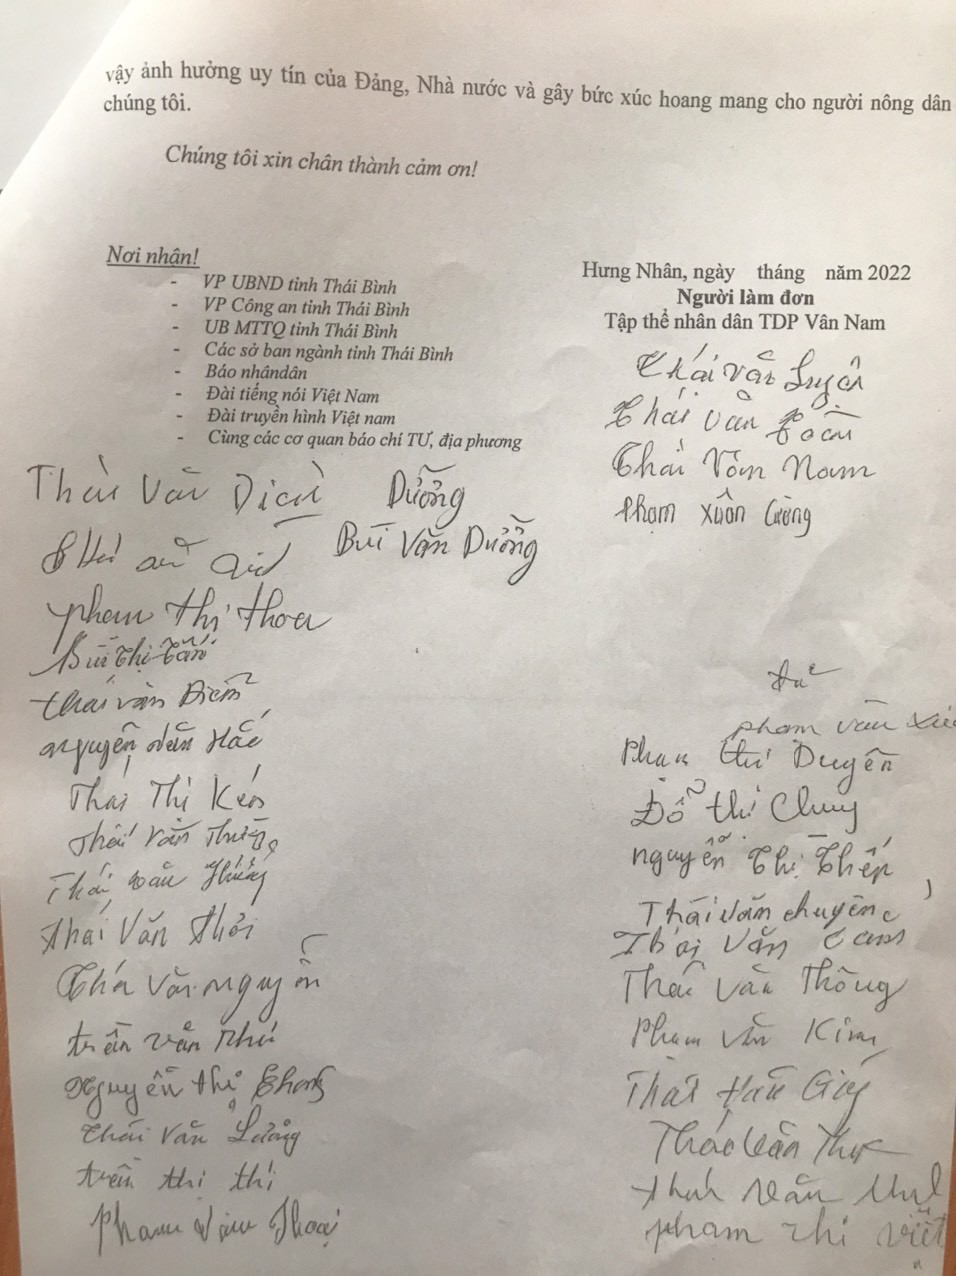 vậy ảnh hưởng uy tín của Đảng, Nhà nước và gây bức xúc hoang mang cho người nông dân
chúng tôi.
Chúng tôi xin chân thành cảm ơn!
Nơi nhận!
- VP UBND tỉnh Thái Bình
- VP Công an tỉnh Thái Bình
- UB MTTQ tỉnh Thái Bình
- Các sở ban ngành tỉnh Thái Bình
- Báo nhândân
- Đài tiếng nói Việt Nam
- Đài truyền hình Việt nam
- Cùng các cơ quan báo chí TƯ, địa phương
Hưng Nhân, ngày tháng năm 2022
Người làm đơn
Tập thể nhân dân TDP Vân Nam
Thái văn Luyện
Thái văn
Thái Văn Nam
Phạm Xuân Cường
Thái Văn
Dưỡng
Bùi Văn Dưỡng
phạm thị thoa
Bùi thị
thái văn Điềm
nguyễn văn Hắc
Thái Thị Kén
Thái văn
Thái văn
thái văn thới
Thái văn nguyễn
trần văn
nguyễn thị
thái văn
trần thị thí
Phạm văn Thoại
phạm văn
Phạm thị Duyên
Đỗ thị Chung
nguyễn thị thếp
Thái văn chuyên
Thái văn cam
Thái văn Thông
Phạm văn Kim
Thái văn
Thái văn
văn
phạm thị viết